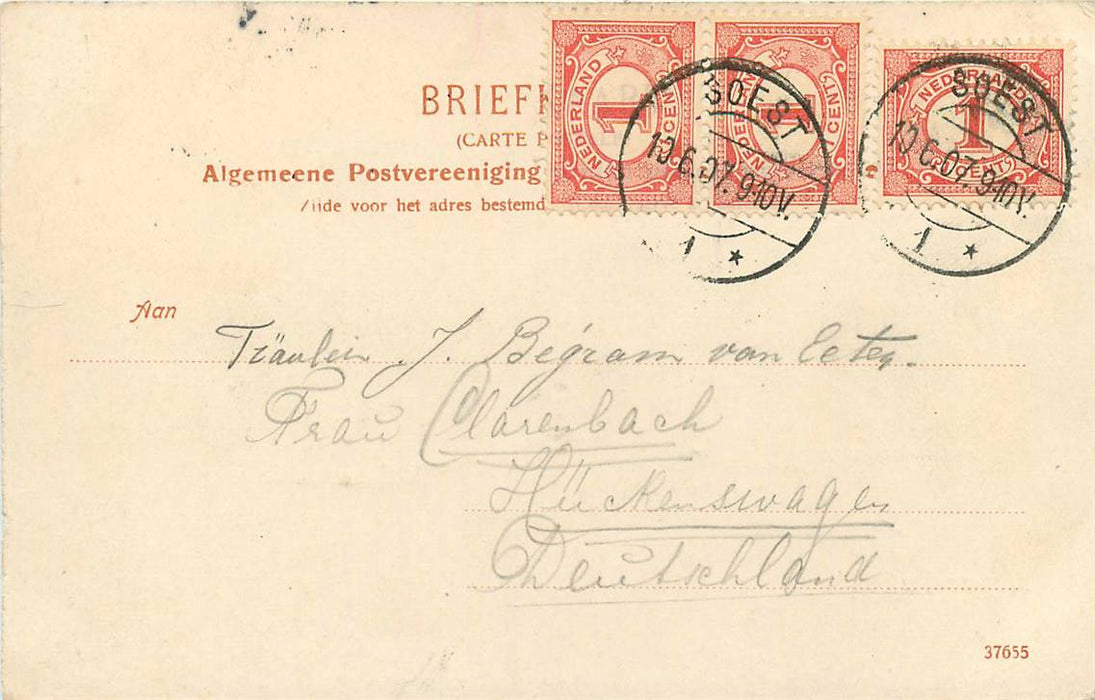 BRIEFK
(CARTE P
Algemeene Postvereeniging
Zijde voor het adres bestemd
NEDERLAND 1 CENT
NEDERLAND 1 CENT
NEDERLAND 1 CENT
SOEST
10.6.07.9-10V.
1 *
SOEST
10.6.07.9-10V.
1 *
Aan
Fräulein J. Begram van
Frau Clarenbach
Hückenswagen
Deutschland
37655